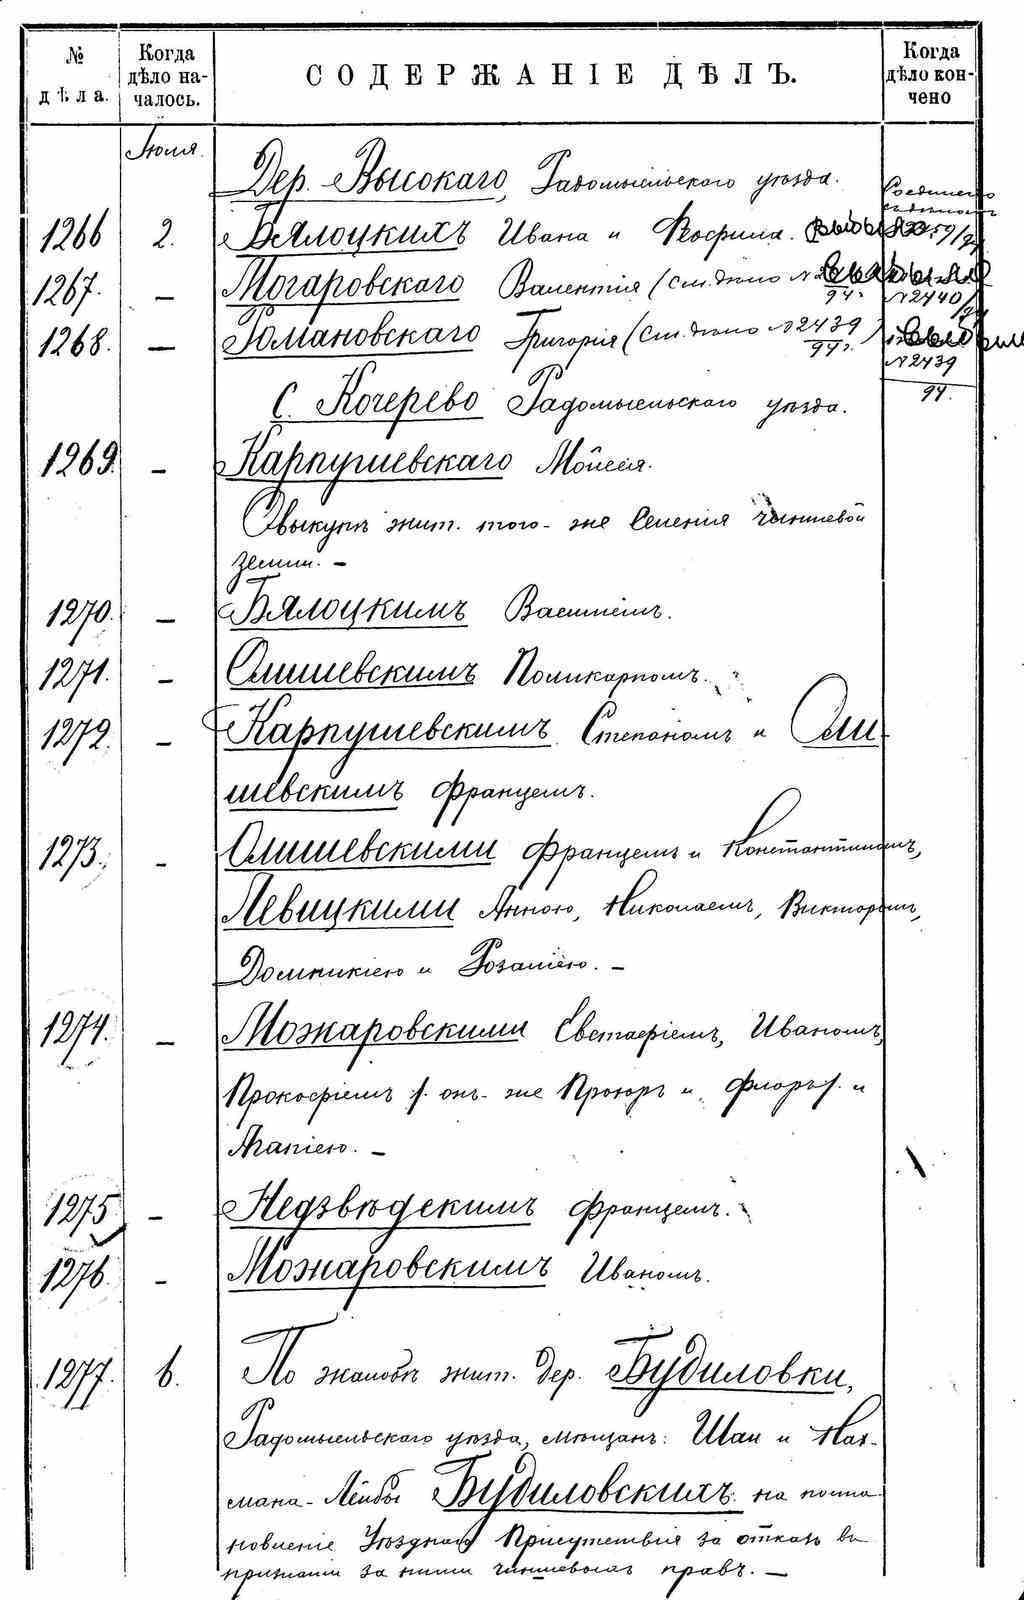 № дѣла.
Когда дѣло началось.
СОДЕРЖАНІЕ ДѢЛЪ.
Когда дѣло кончено
Іюля.
Дер. Высокаго, Радомысльского уѣзда.
1266 2. Бялоцкихъ Ивана и Феофила. выбыло
1267. — Могаровскаго Валентія (см. дѣло № 94 г. выбыло №2440/94
1268. — Романовскаго Григорія (см. дѣло №2439 94 г.) выбыло №2439 94.
С. Кочерево Радомысльскаго уѣзда.
1269. — Карпушевскаго Мойсея.
О выкупѣ жит. того-же селенія чиншевой
земли. —
1270. — Бялоцкимъ Василіемъ.
1271. — Олишевскимъ Поликарпомъ.
1272. — Карпушевскимъ Степаномъ и Оли-
шевскимъ Францемъ.
1273. — Олишевскими Францемъ и Константиномъ,
Левицкими Анною, Николаемъ, Викторомъ,
Домникіею и Розаліею. —
1274. — Можаровскими Евстафіемъ, Иваномъ,
Прокофіемъ /. онъ-же Прохоръ и Флоръ /. и
Агапіею. —
1275 — Недзвѣдскимъ Францемъ.
1276. — Можаровскимъ Иваномъ.
1277. 6. По жалобѣ жит. дер. Будиловки,
Радомысльскаго уѣзда, мѣщанъ: Шаи и Нах-
мана-Лейбы Будиловскихъ на поста-
новленіе Уѣзднаго Присутствія за отказъ въ
признаніи за ними чиншевыхъ правъ. —